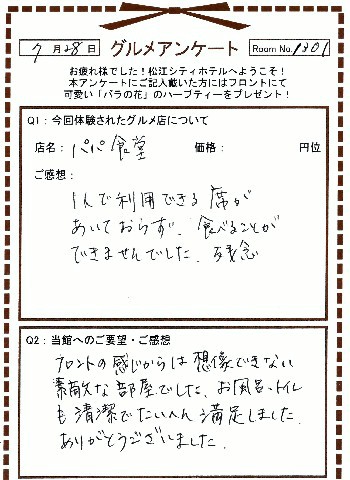 7月28日 グルメアンケート Room No. 1301
お疲れ様でした！松江シティホテルへようこそ！
本アンケートにご記入戴いた方にはフロントにて
可愛い「バラの花」のハーブティーをプレゼント！
Q1：今回体験されたグルメ店について
店名：パパ食堂 価格： 円位
ご感想：
1人で利用できる席が
あいておらず、食べることが
できませんでした。残念
Q2：当館へのご要望・ご感想
フロントの感じからは想像できない
素敵な部屋でした。お風呂、トイレ
も清潔でたいへん満足しました。
ありがとうございました。